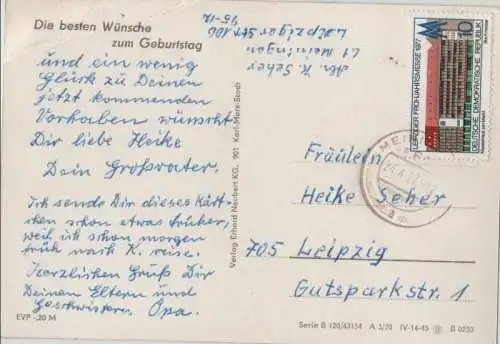 Die besten Wünsche
zum Geburtstag
und ein wenig
Glück zu Deinen
jetzt kommenden
Vorhaben wünscht
Dir liebe Heike
Dein Großvater.
Ich sende Dir dieses Kärt-
chen schon etwas früher,
weil ich schon morgen
früh nach K. reise.
Herzlichen Gruß Dir
Deinen Eltern und
Geschwistern. Opa.
EVP -,20 M
Verlag Erhard Neubert KG, 901 Karl-Marx-Stadt
Abs. K. Seher
61 Meiningen
Leipziger Str. 106
LEIPZIGER FRÜHJAHRSMESSE 1977
DEUTSCHE DEMOKRATISCHE REPUBLIK
10
Fräulein
Heike Seher
705 Leipzig
Gutsparkstr. 1
Serie B 120/43154 A 3/70 IV-14-45 B 0233